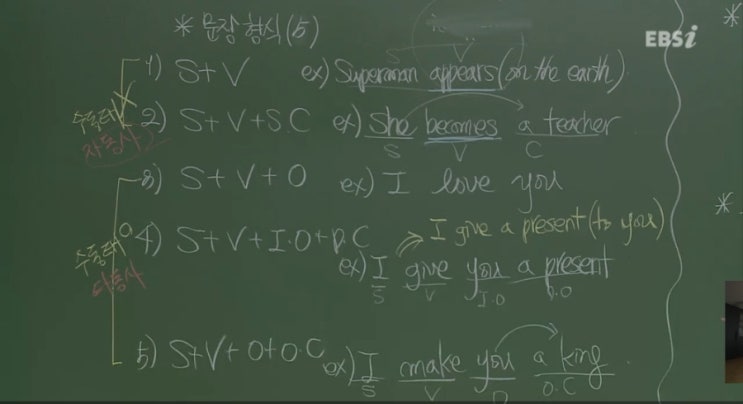 * 문장 형식(5)
EBSi
S V
1) S+V ex) Superman appears (on the earth)
수동태 X
자동사
2) S+V+S.C ex) She becomes a teacher
S V C
3) S+V+O ex) I love you
I give a present (to you)
수동태 O
타동사
4) S+V+I.O+D.C ex) I give you a present
S V I.O D.O
5) S+V+O+O.C ex) I make you a king
S V O O.C
*
*